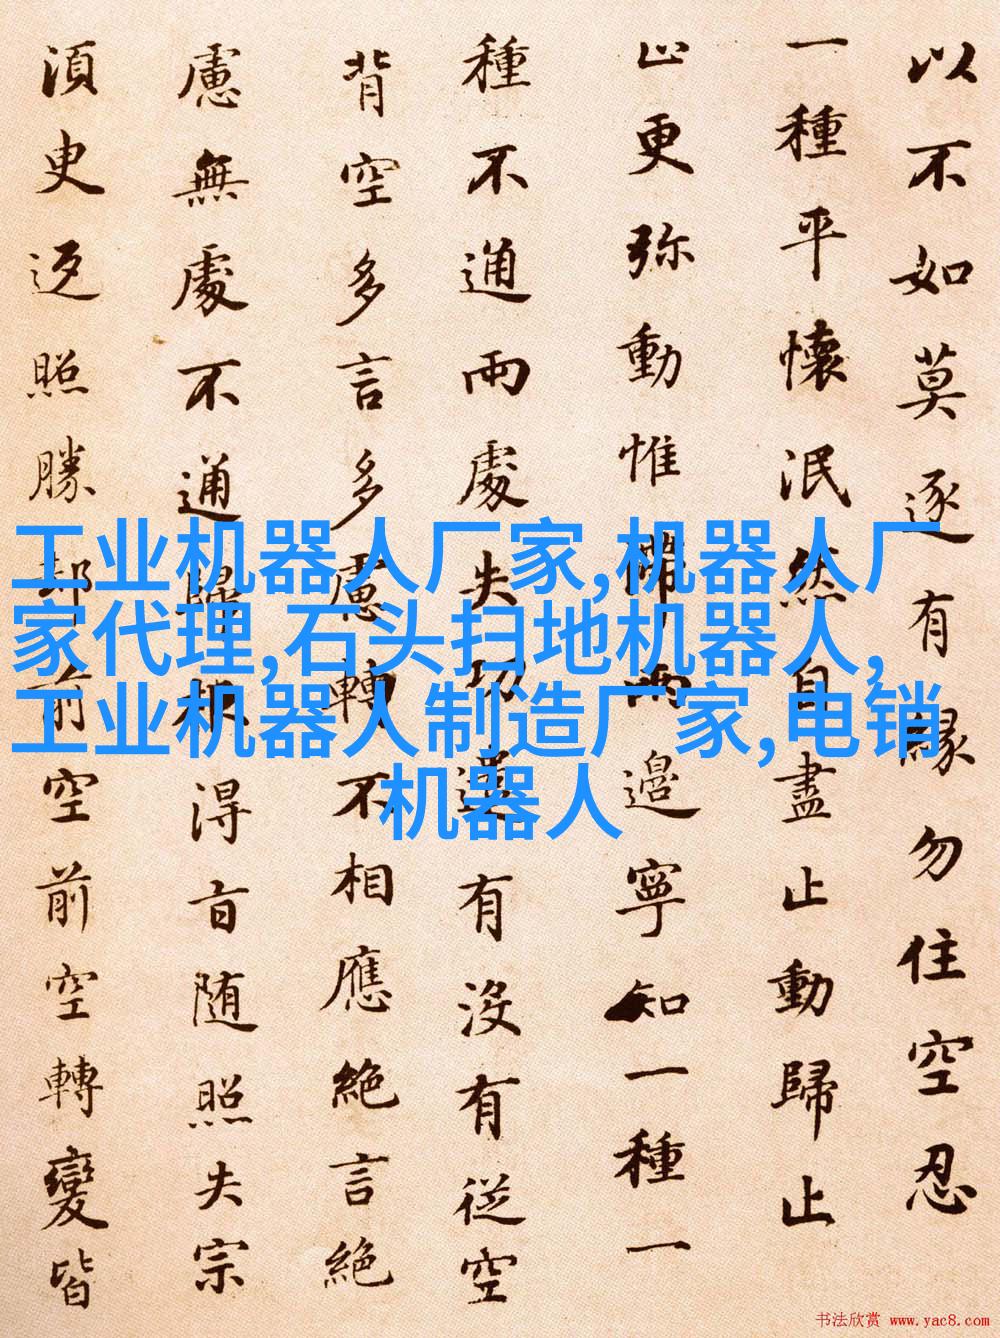 以不如莫逐有緣勿住空忍
一種平懷泯然自盡止動歸止
止更弥動惟滯兩邊寧知一種一
種不通兩處失功遣有沒有從空
背空多言多慮轉不相應絕言絕
慮無處不通歸根得旨随照失宗
須臾返照勝却前空前空轉變皆
工业机器人厂家,机器人厂
家代理,石头扫地机器人,
工业机器人制造厂家,电销
机器人
书法欣赏 www.yac8.com